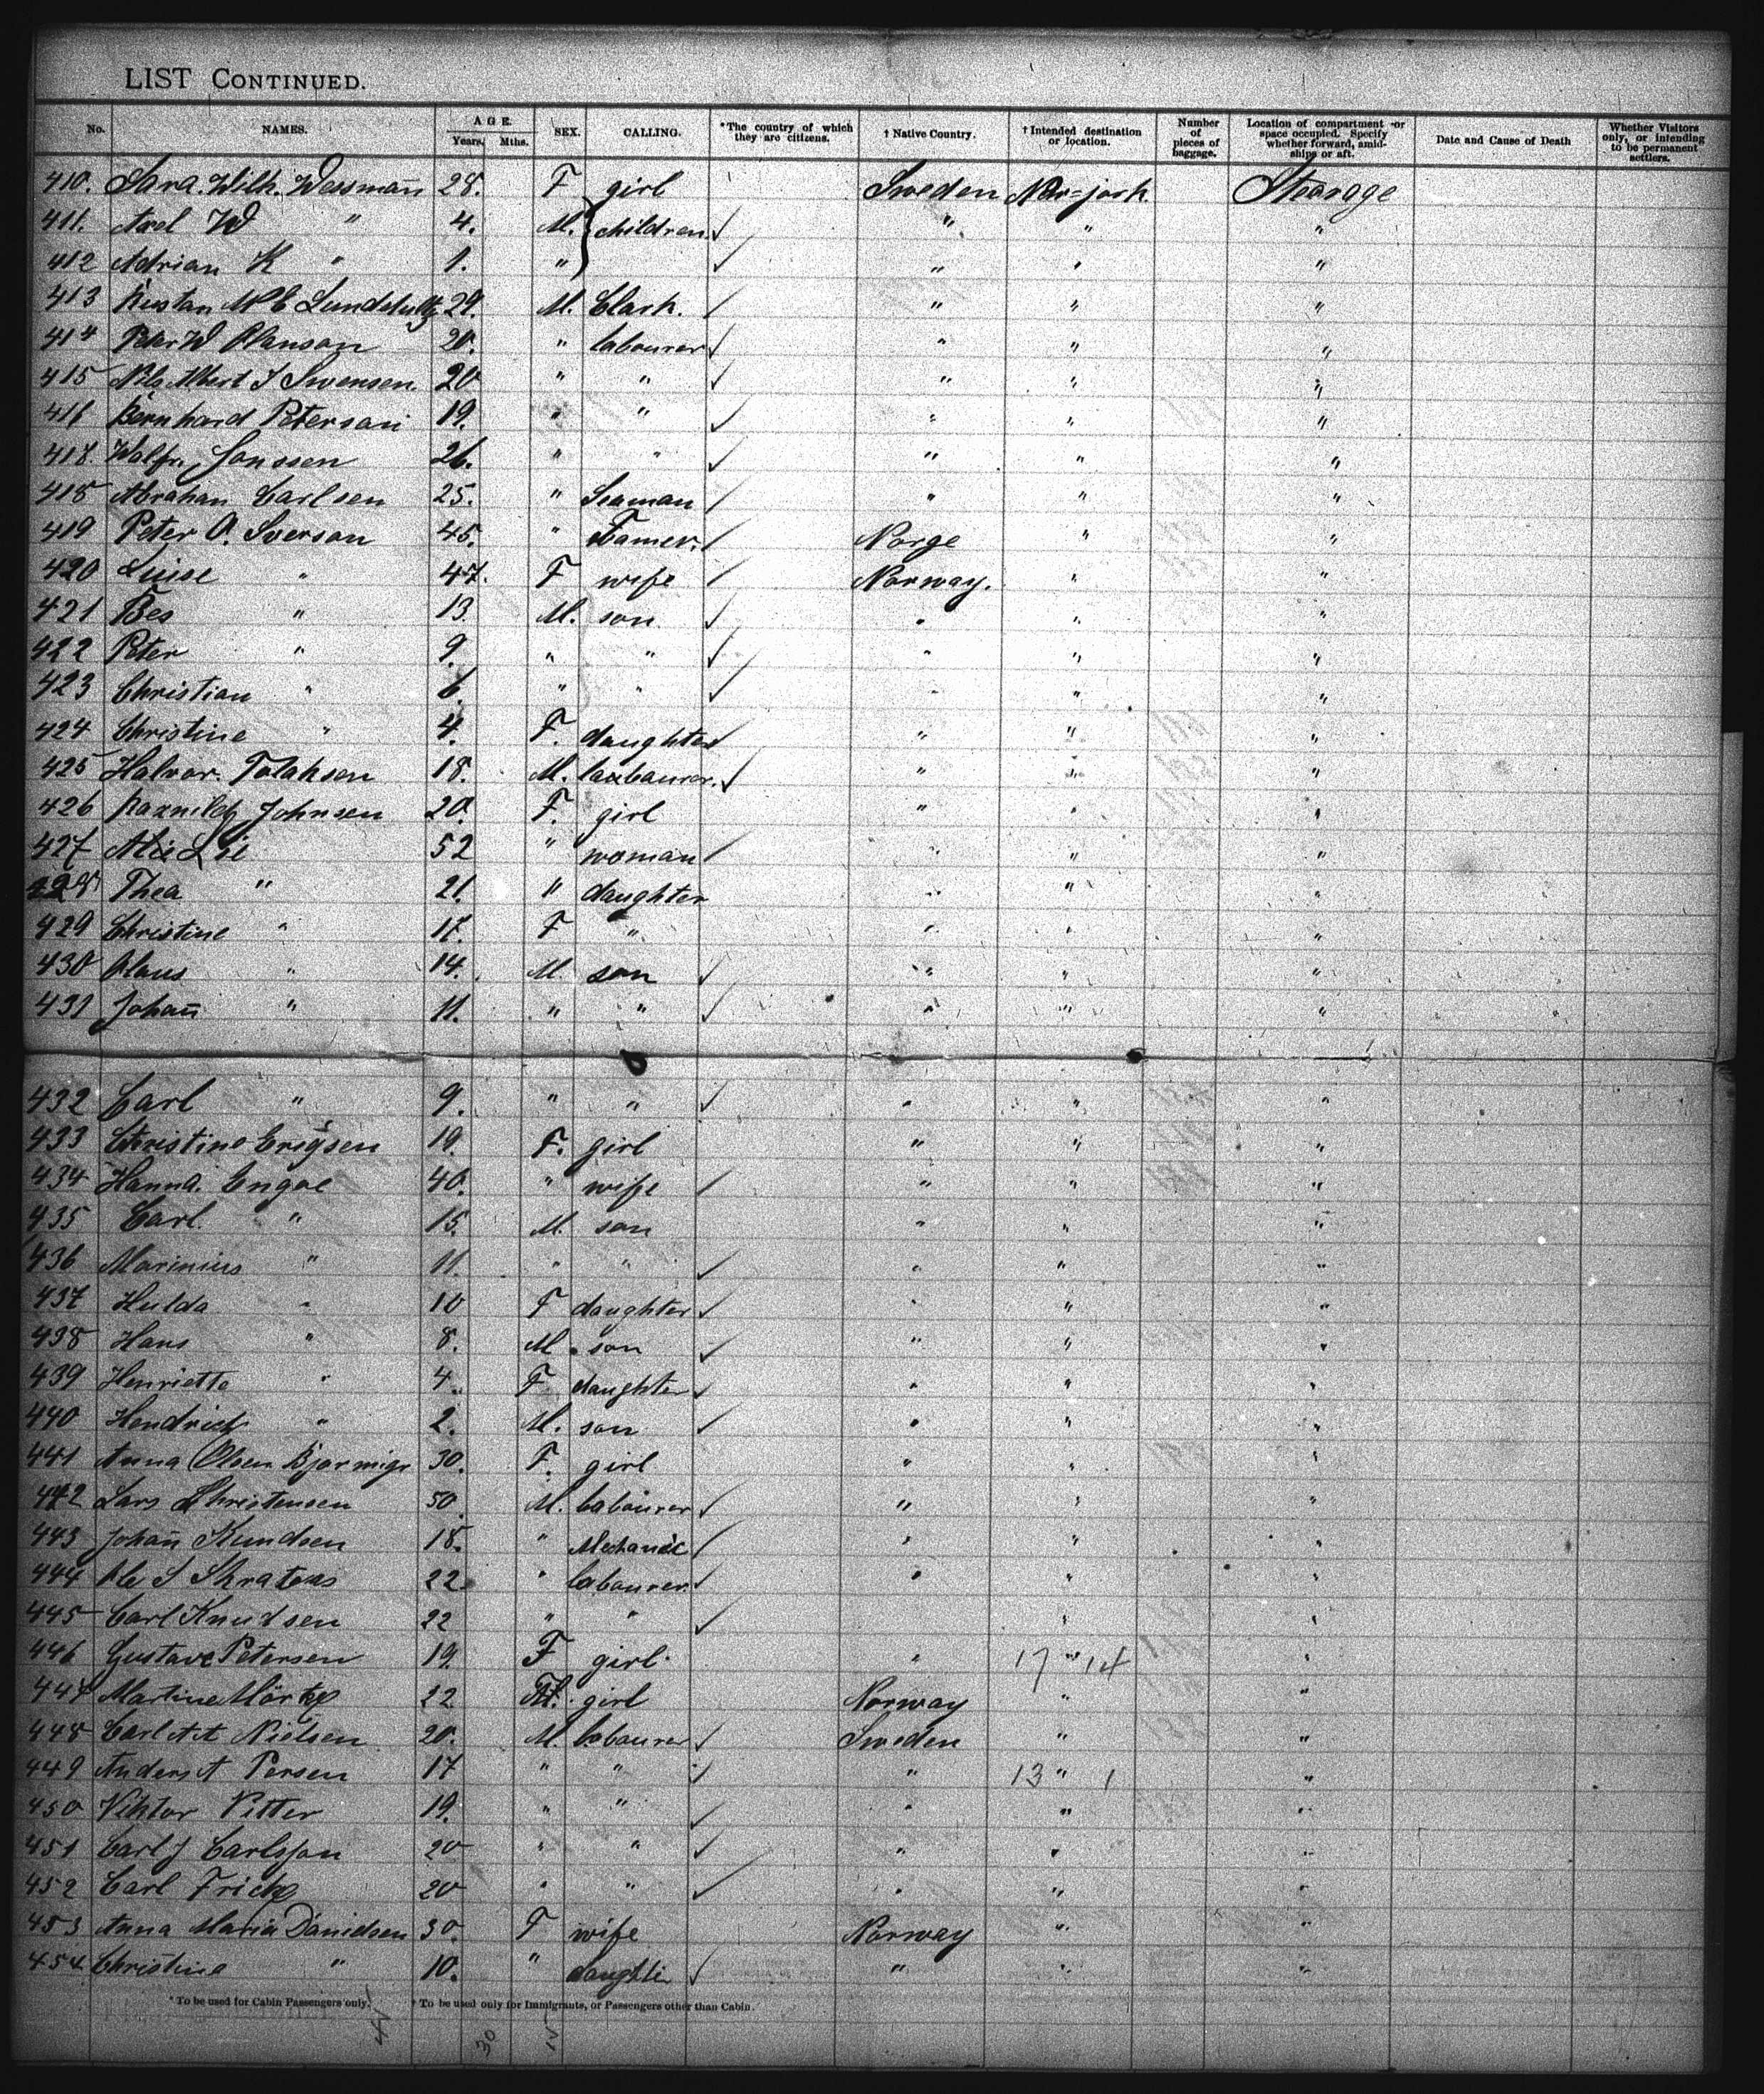 LIST CONTINUED.
No. NAMES. AGE. Years. Mths. SEX. CALLING. *The country of which they are citizens. † Native Country. † Intended destination or location. Number of pieces of baggage. Location of compartment or space occupied. Specify whether forward, amidships or aft. Date and Cause of Death Whether Visitors only, or intending to be permanent settlers.
410. Sara. Wilh. Wessman̄ 28. F girl Sweden New=jork Stearage
411. Axel W " 4. M. children ✓ " " "
412 Adrian K " 1. " ✓ " " "
413 Gustan M C 29. M. Clark. ✓ " " "
414 Peter W Olanson 20. " labourer ✓ " " "
415 Nils Albert J Swensen 20 " " ✓ " " "
416 Bernhard Peterson 19. " " ✓ " " "
418. Janssen 26. " " ✓ " " "
418 Abraham Carlsen 25. " Seaman ✓ " " "
419 Peter O. Iverson 45. " Famer. ✓ Norge " "
420 Luise " 47. F wife ✓ Norway. " "
421 " 13. M. son ✓ " " "
422 Peter " 9. " " ✓ " " "
423 Christian " 6. " " ✓ " " "
424 Christine " 4. F. daughter ✓ " " "
425 Halvor. Tolaksen 18. M. ✓ " " "
426 Johnsen 20. F. girl " " "
427 Lie 52 " woman ✓ " " "
428 Thea " 21. " daughter " " "
429 Christine " 17. F " " " "
430 Olaus " 14. M. son ✓ " " "
431 Johan̄ " 11. " " ✓ " " "
432 Carl " 9. " " ✓ " " "
433 Christine Erigsen 19. F. girl " " "
434 Hanna. Engoe 40. " wife ✓ " " "
435 Carl. " 15. M. son " " "
436 Marinius " 11. " " ✓ " " "
437 Hulda " 10 F daughter ✓ " " "
438 Hans " 8. M. son ✓ " " "
439 Henriette " 4. F daughter ✓ " " "
440 Hendrich " 2. M. son ✓ " " "
441 Anna Olsen 30. F. girl " " "
442 Lars Christensen 50 M. labourer ✓ " " "
443 Johan̄ Kundsen 18. " Mechanic ✓ " " "
444 Ole S 22 " labourer ✓ " " "
445 Carl Knudsen 22 " " ✓ " " "
446 Gustave Petersen 19. F girl. " 17 " 14 "
447 Martine 22 F. girl Norway " "
448 Carl A A Nielsen 20. M. labourer ✓ Sweden " "
449 Anders A Persen 17 " " ✓ " 13 " 1 "
450 Viktor Vitter 19. " " ✓ " " "
451 Carl J Carlsson 20 " " ✓ " " "
452 Carl Frick 20 " " ✓ " " "
453 Anna Maria Danielsen 30. F wife Norway " "
454 Christine " 10. " ✓ " " "
* To be used for Cabin Passengers only. † To be used only for Immigrants, or Passengers other than Cabin.
30